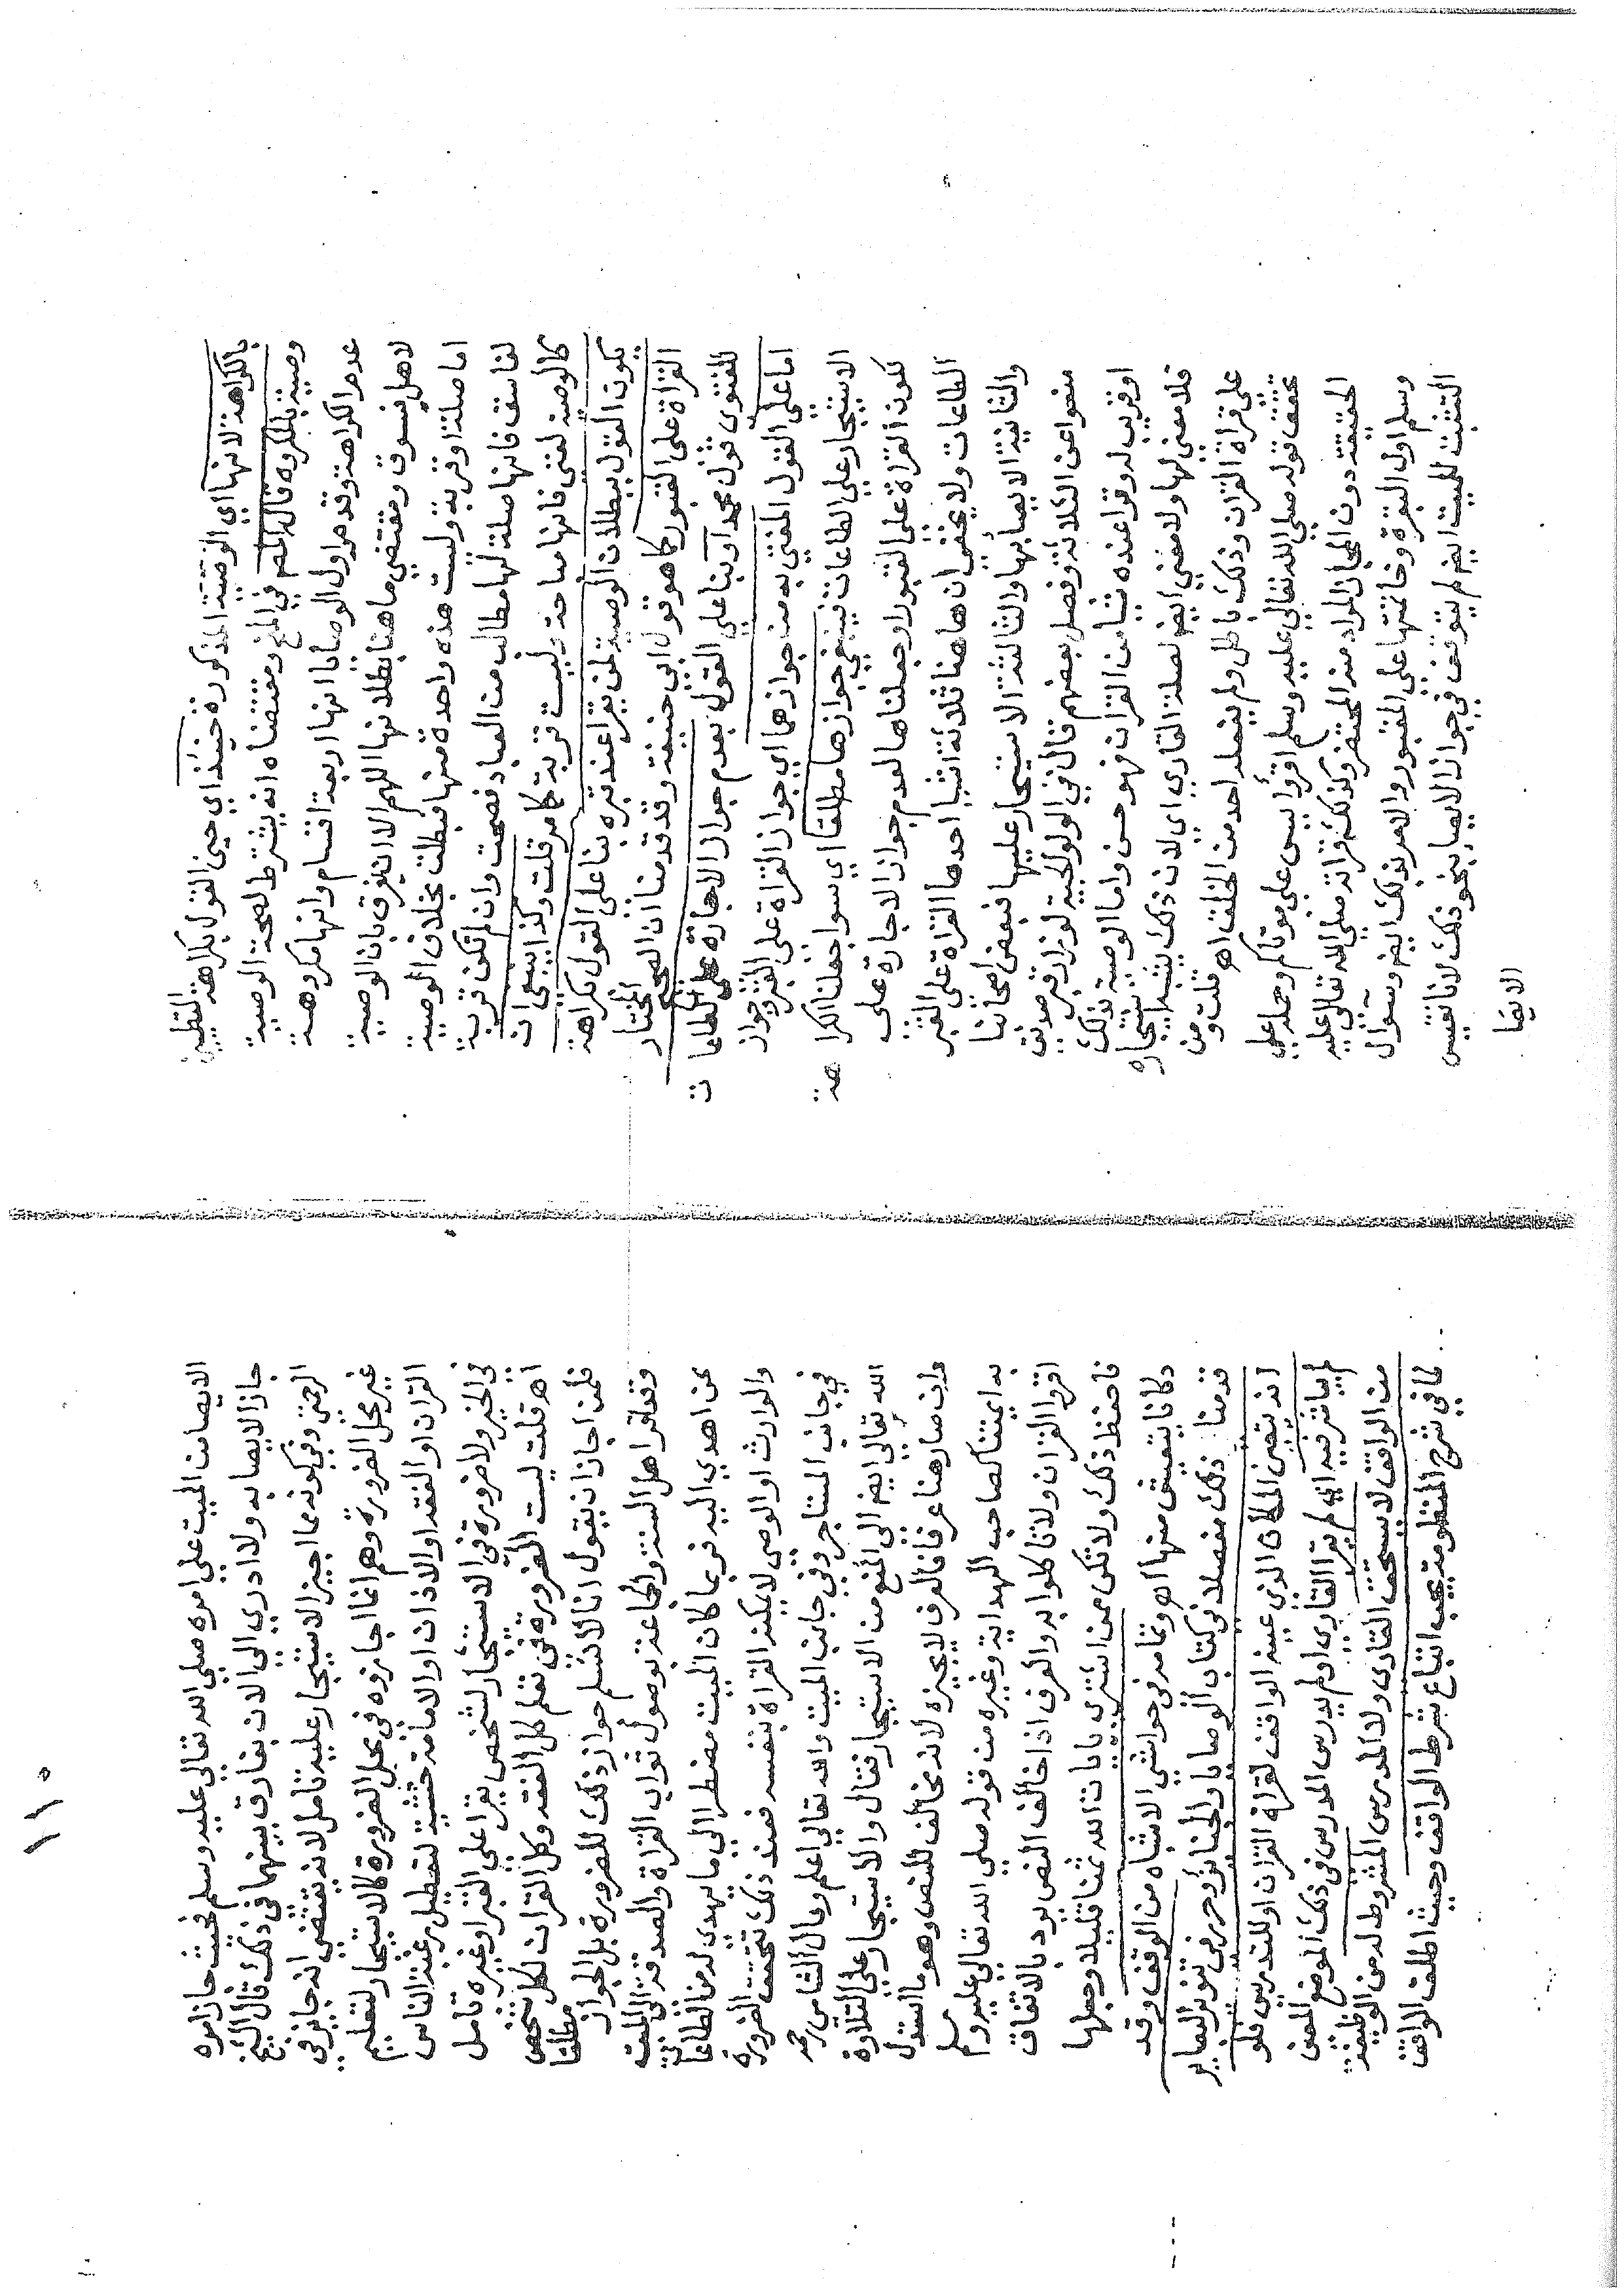 بالكراهة لانها اي الوصية المذكورة حينئذ اي حين القول بكراهة التطيين
وصية بالمكروه قال المص في المنح ومقتضاه انه يشترط لصحة الوصية
عدم الكراهة وقد مر اول الوصايا انها اربعة اقسام وانها مكروهة
لاهل فسوق ومقتضي ما هنا بطلانها اللهم الا ان يفرق بان الوصية
اما صلة او قربة وليست هذه واحدة منها فبطلت بخلاف الوصية
لفاسق فانها صلة لها مطالب من العباد فصحت وان لم تكن قربة
كالوصية لغني فانها مباحة وليست قربة كما مر قلت وكذا ينبغي ان
يكون القول ببطلان الوصية لمن يقرا عند قبره بنا على القول بكراهة
القراة على القبور كما هو قول ابي حنيفة وقد قدمنا ان الصحيح المختار
للفتوى قول محمد او بنا علي القول بعدم جواز الاجارة على الطاعات
اما على القول المفتي به من جوازهما اي جواز القراة على القبر وجواز
الاستيجار علي الطاعات فينبغي جوازها مطلقا اي سوا جعلنا الكراهة
لكون القراة على القبور او جعلناها لعدم جواز الاجارة على
الطاعات ولا يخفى ان هاهنا ثلاثة اشيا احدها القراة على القبر
والثانية الايصا بها والثالثة الاستيجار عليها فبعض اصحابنا
منعوا عن الثلاثة وفصل بعضهم قال في الولوالجية لو زار قبر صديق
او قريب له وقرا عنده شيا من القران فهو حسن واما الوصية بذلك
فلا معنى لها ولا معنى ايض لصلة القاري اي لان ذلك يشبه استيجاره
على قراة القران وذلك باطل ولم يفعله احد من الخلفا اه قلت ومن
تحقق قوله صلي الله تعالي عليه وسلم اقرؤا يس علي موتاكم وحمله علي
الحقيقة دون المجاز المراد منه المحتضر وكذلك قراته صلي الله تعالي عليه
وسلم اول البقرة وخاتمتها على المقبور والامر بذلك ايض وسؤال
التثبيت للميت ايض لم يتوقف في جواز الايصا بنحو ذلك لانا نقيس
الايصا
١١٠
الايصا من الميت علي امره صلي الله تعالي عليه وسلم فحيث جاز امره
جاز الايصا به ولا ادري الي الان بفارق بينهما في ذلك قال الشيخ
الرحمتي وفي كونه مما اجيز الاستيجار عليه تامل لانه يقتضي انه جايز في
غير محل الضرورة وهم انما اجازوه في محل الضرورة كالاستيجار لتعليم
القران او الفقه او الاذان او الامامة خشية لتعطيل رغبة الناس
في الخير ولا ضرورة في الاستئجار لشخص يقرا علي القبر او غيره تامل
اه قلت ليست الضرورة في تعلم كل الفقه وكل القران لكل شخص
فلمن اجاز ان يقول انا لا نسلم جواز ذلك للضرورة بل الجواز مطلقا
وقد اقر اهل السنة والجماعة بوصول ثواب القراة والصدقة الى الميت
ممن اهدي اليه فربما كان الميت مضطرا الي ما يهدى له من الطاعات
والوارث او الوصي لا يمكنه القراة بنفسه فعند ذلك تتحقق الضرورة
في جانب المستاجر وفي جانب الميت والله تعالي اعلم ومال الشامي رحمه
الله تعالي ايض الي المنع من الاستيجار فقال والاستيجار علي التلاوة
وان صار هنا عرفا فالعرف لا يجيزه لانه مخالف للنص وهو ما استدل
به ايمتنا كصاحب الهداية وغيره من قوله صلي الله تعالي عليه وسلم
اقرؤا القران ولا تاكلوا به والعرف اذا خالف النص يرد بالاتفاق
فاحفظ ذلك ولا تكن ممن اشترى بايات الله ثمنا قليلا وجعلها
دكانا يتعيش منها اه وتمامه في حواشي الاشباه من الوقف وقد
قدمنا ذلك مفصلا في كتاب الوصايا والجنائز وحرر في تنوير البصاير
انه يتعين المكان الذي عينه الواقف لقراة القران او للتدريس فلو
لم يباشر فيه اي لم يقرا القاري او لم يدرس المدرس في ذلك الموضع المعين
من الواقف لا يستحق القاري ولا المدرس المشروط له من الوظيفة
لما في شرح المنظومة يجب اتباع شرط الواقف وحيث اطلق الواقف